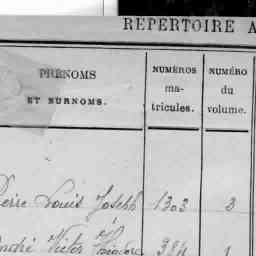 RÉPERTOIRE A
PRÉNOMS
ET SURNOMS.
NUMÉROS
ma-
tricules.
NUMÉRO
du
volume.
Pierre Louis Joseph 1303 3
André Victor Théodore 384 1